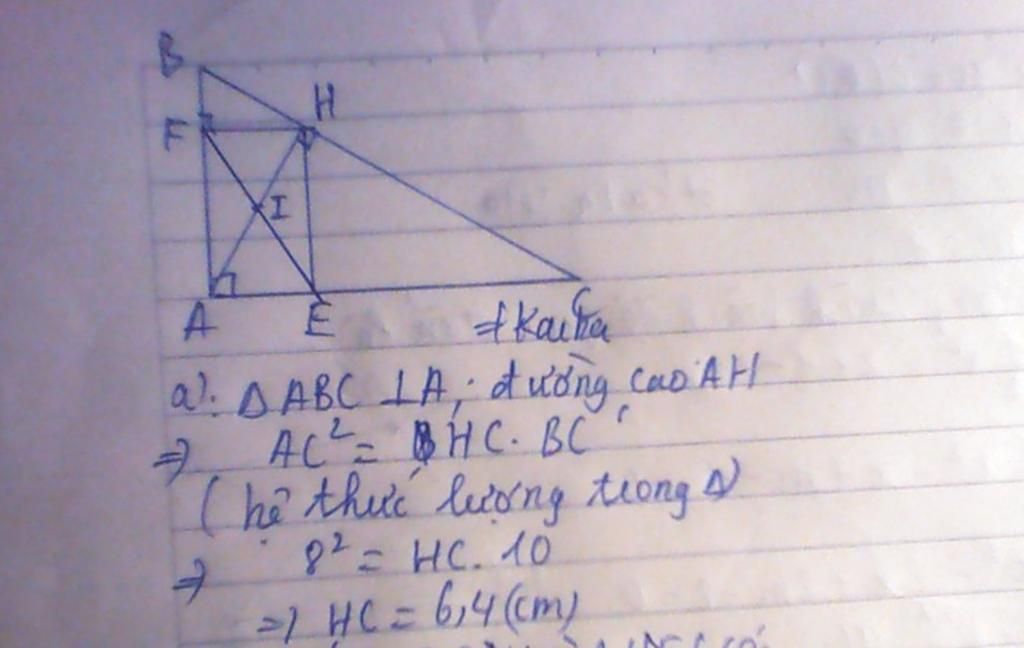 B
H
F
I
A E C
a). Δ ABC ⊥A; đường cao AH
=> AC² = HC. BC
(hệ thức lượng trong Δ)
=> 8² = HC. 10
=> HC = 6,4 (cm)